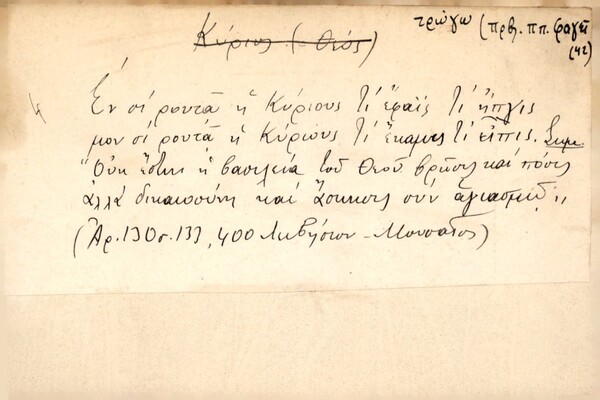 Κύριος (-Θεός)
τρώγω (πρβ. ππ. φαγί
(42)
Ἐν σί ρουτᾶ ἡ Κύριους τί ἔφαϊς τί ἤπγις
μον σί ρουτᾶ ἡ Κύριους τί ἔκαμις τί εἶπις. Σημ.
"Οὐκ ἔστιν ἡ βασιλεία τοῦ Θεοῦ βρῶσις καί πόσις
ἀλλά δικαιοσύνη καί ἄσκησις σύν ἁγιασμῷ"
(Ἀρ. 130 σ. 133, 400 Λιβήσιον - Μουσαῖος)